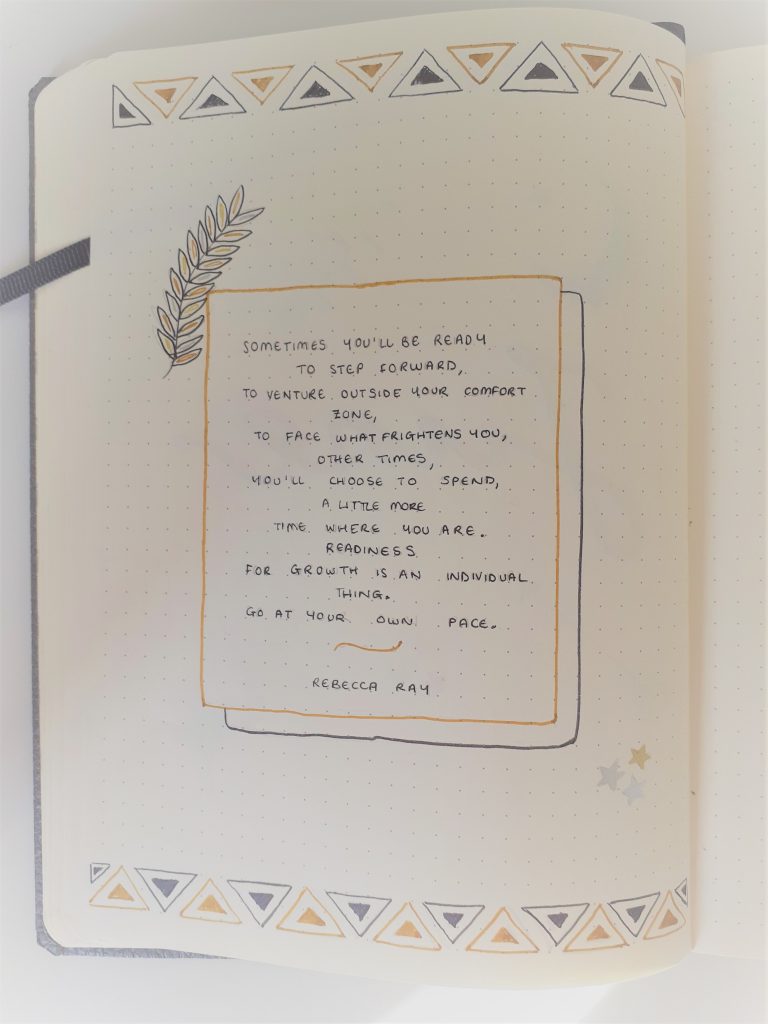 SOMETIMES YOU'LL BE READY
TO STEP FORWARD,
TO VENTURE OUTSIDE YOUR COMFORT
ZONE,
TO FACE WHAT FRIGHTENS YOU,
OTHER TIMES,
YOU'LL CHOOSE TO SPEND,
A LITTLE MORE
TIME WHERE YOU ARE.
READINESS
FOR GROWTH IS AN INDIVIDUAL
THING.
GO AT YOUR OWN PACE.
REBECCA RAY